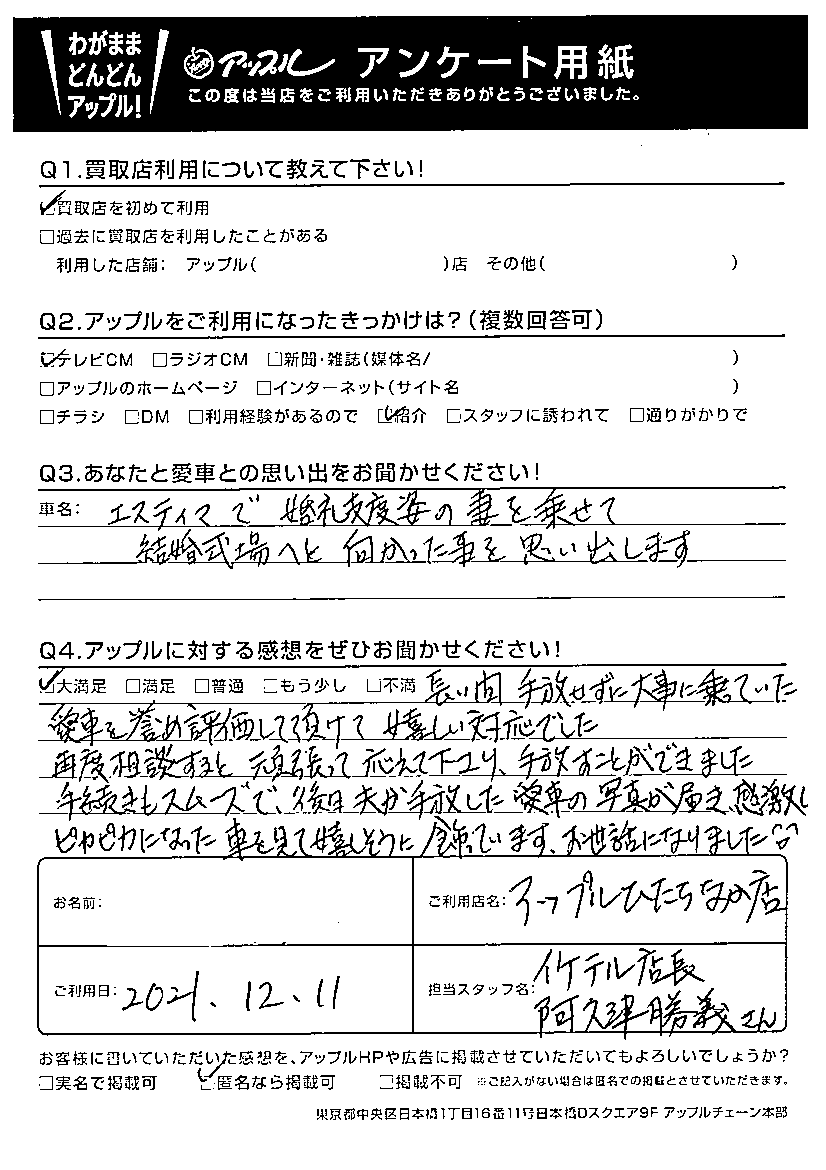 わがまま
どんどん
アップル!
アップル アンケート用紙
この度は当店をご利用いただきありがとうございました。
Q1.買取店利用について教えて下さい!
☑買取店を初めて利用
□過去に買取店を利用したことがある
利用した店舗: アップル( )店 その他( )
Q2.アップルをご利用になったきっかけは?(複数回答可)
☑テレビCM □ラジオCM □新聞・雑誌(媒体名/ )
□アップルのホームページ □インターネット(サイト名 )
□チラシ □DM □利用経験があるので ☑紹介 □スタッフに誘われて □通りがかりで
Q3.あなたと愛車との思い出をお聞かせください!
車名: エスティマで 婚礼支度姿の妻を乗せて
結婚式場へと 向かった事を 思い出します
Q4.アップルに対する感想をぜひお聞かせください!
☑大満足 □満足 □普通 □もう少し □不満 長い間 手放せずに大事に乗ていた
愛車を誉め評価して頂けて 嬉しい対応でした
再度相談すると 頑張って 応えて下さり、手放すことができました
手続きもスムーズで、後日 夫が手放した 愛車の写真が届き、感激し
ピカピカになった 車を見て嬉しそうに 飾っています、お世話になりました
お名前:
ご利用店名: アップルひたちなか店
ご利用日: 2021.12.11
担当スタッフ名: イケテル店長
阿久津勝義さん
お客様に書いていただいた感想を、アップルHPや広告に掲載させていただいてもよろしいでしょうか?
□実名で掲載可 ☑匿名なら掲載可 □掲載不可 ※ご記入がない場合は匿名での掲載とさせていただきます。
東京都中央区日本橋1丁目16番11号日本橋Dスクエア9F アップルチェーン本部